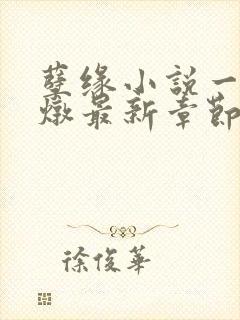 孽缘小说一
燉最新章節
徐俊華